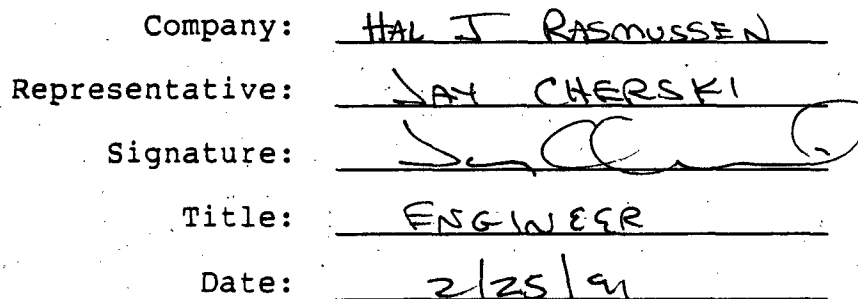 Company: HAL J RASMUSSEN
Representative: JAY CHERSKI
Signature:
Title: ENGINEER
Date: 2/25/91